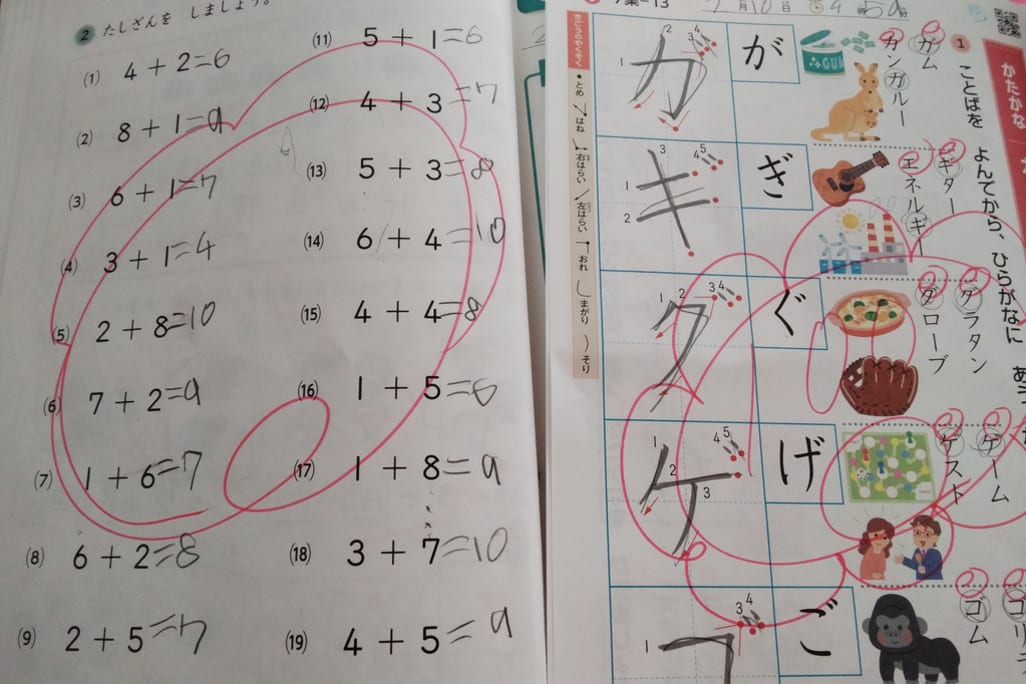 2 たしざんを しましょう。
(1) 4+2=6
(2) 8+1=9
(3) 6+1=7
(4) 3+1=4
(5) 2+8=10
(6) 7+2=9
(7) 1+6=7
(8) 6+2=8
(9) 2+5=7
(11) 5+1=6
(12) 4+3=7
(13) 5+3=8
(14) 6+4=10
(15) 4+4=8
(16) 1+5=6
(17) 1+8=9
(18) 3+7=10
(19) 4+5=9
13
月10日
かたかな
1 ことばを よんでから、ひらがなに
ガム
カンガルー
GUM
ギター
エネルギー
グラタン
グローブ
ゲーム
ゲスト
ゴム
が
ガ
ぎ
ギ
ぐ
グ
げ
ゲ
ご
きごうのやくそく
・とめ
はね
右はらい
左はらい
おれ
まがり
そり